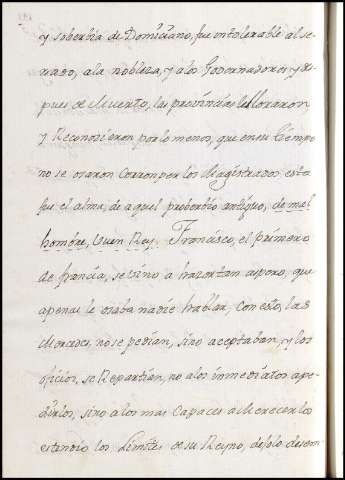 y soberbia de Domiciano, fue intolerable al se-
nado, a la nobleza, y a los Governadores, y des-
pues de Muerto, las provincias le lloraron
y Reconosieron por lo menos, que en su tiempo
no se osaron corromper los Magistrados esta
fue el alma, de aquel proberbio antiguo, de mal
hombre, buen Rey. Francisco, el primero
de francia, se hazo tan aspero, que
apenas le osaba nadie hablar, con esto, las
Mercedes, no se pedian, sino aceptaban, y los
oficios, se Repartian, no a los inmediatos a pe-
dirlos, sino a los mas Capaces a Merecerlos
estendio los Limites de su Reyno, desolo